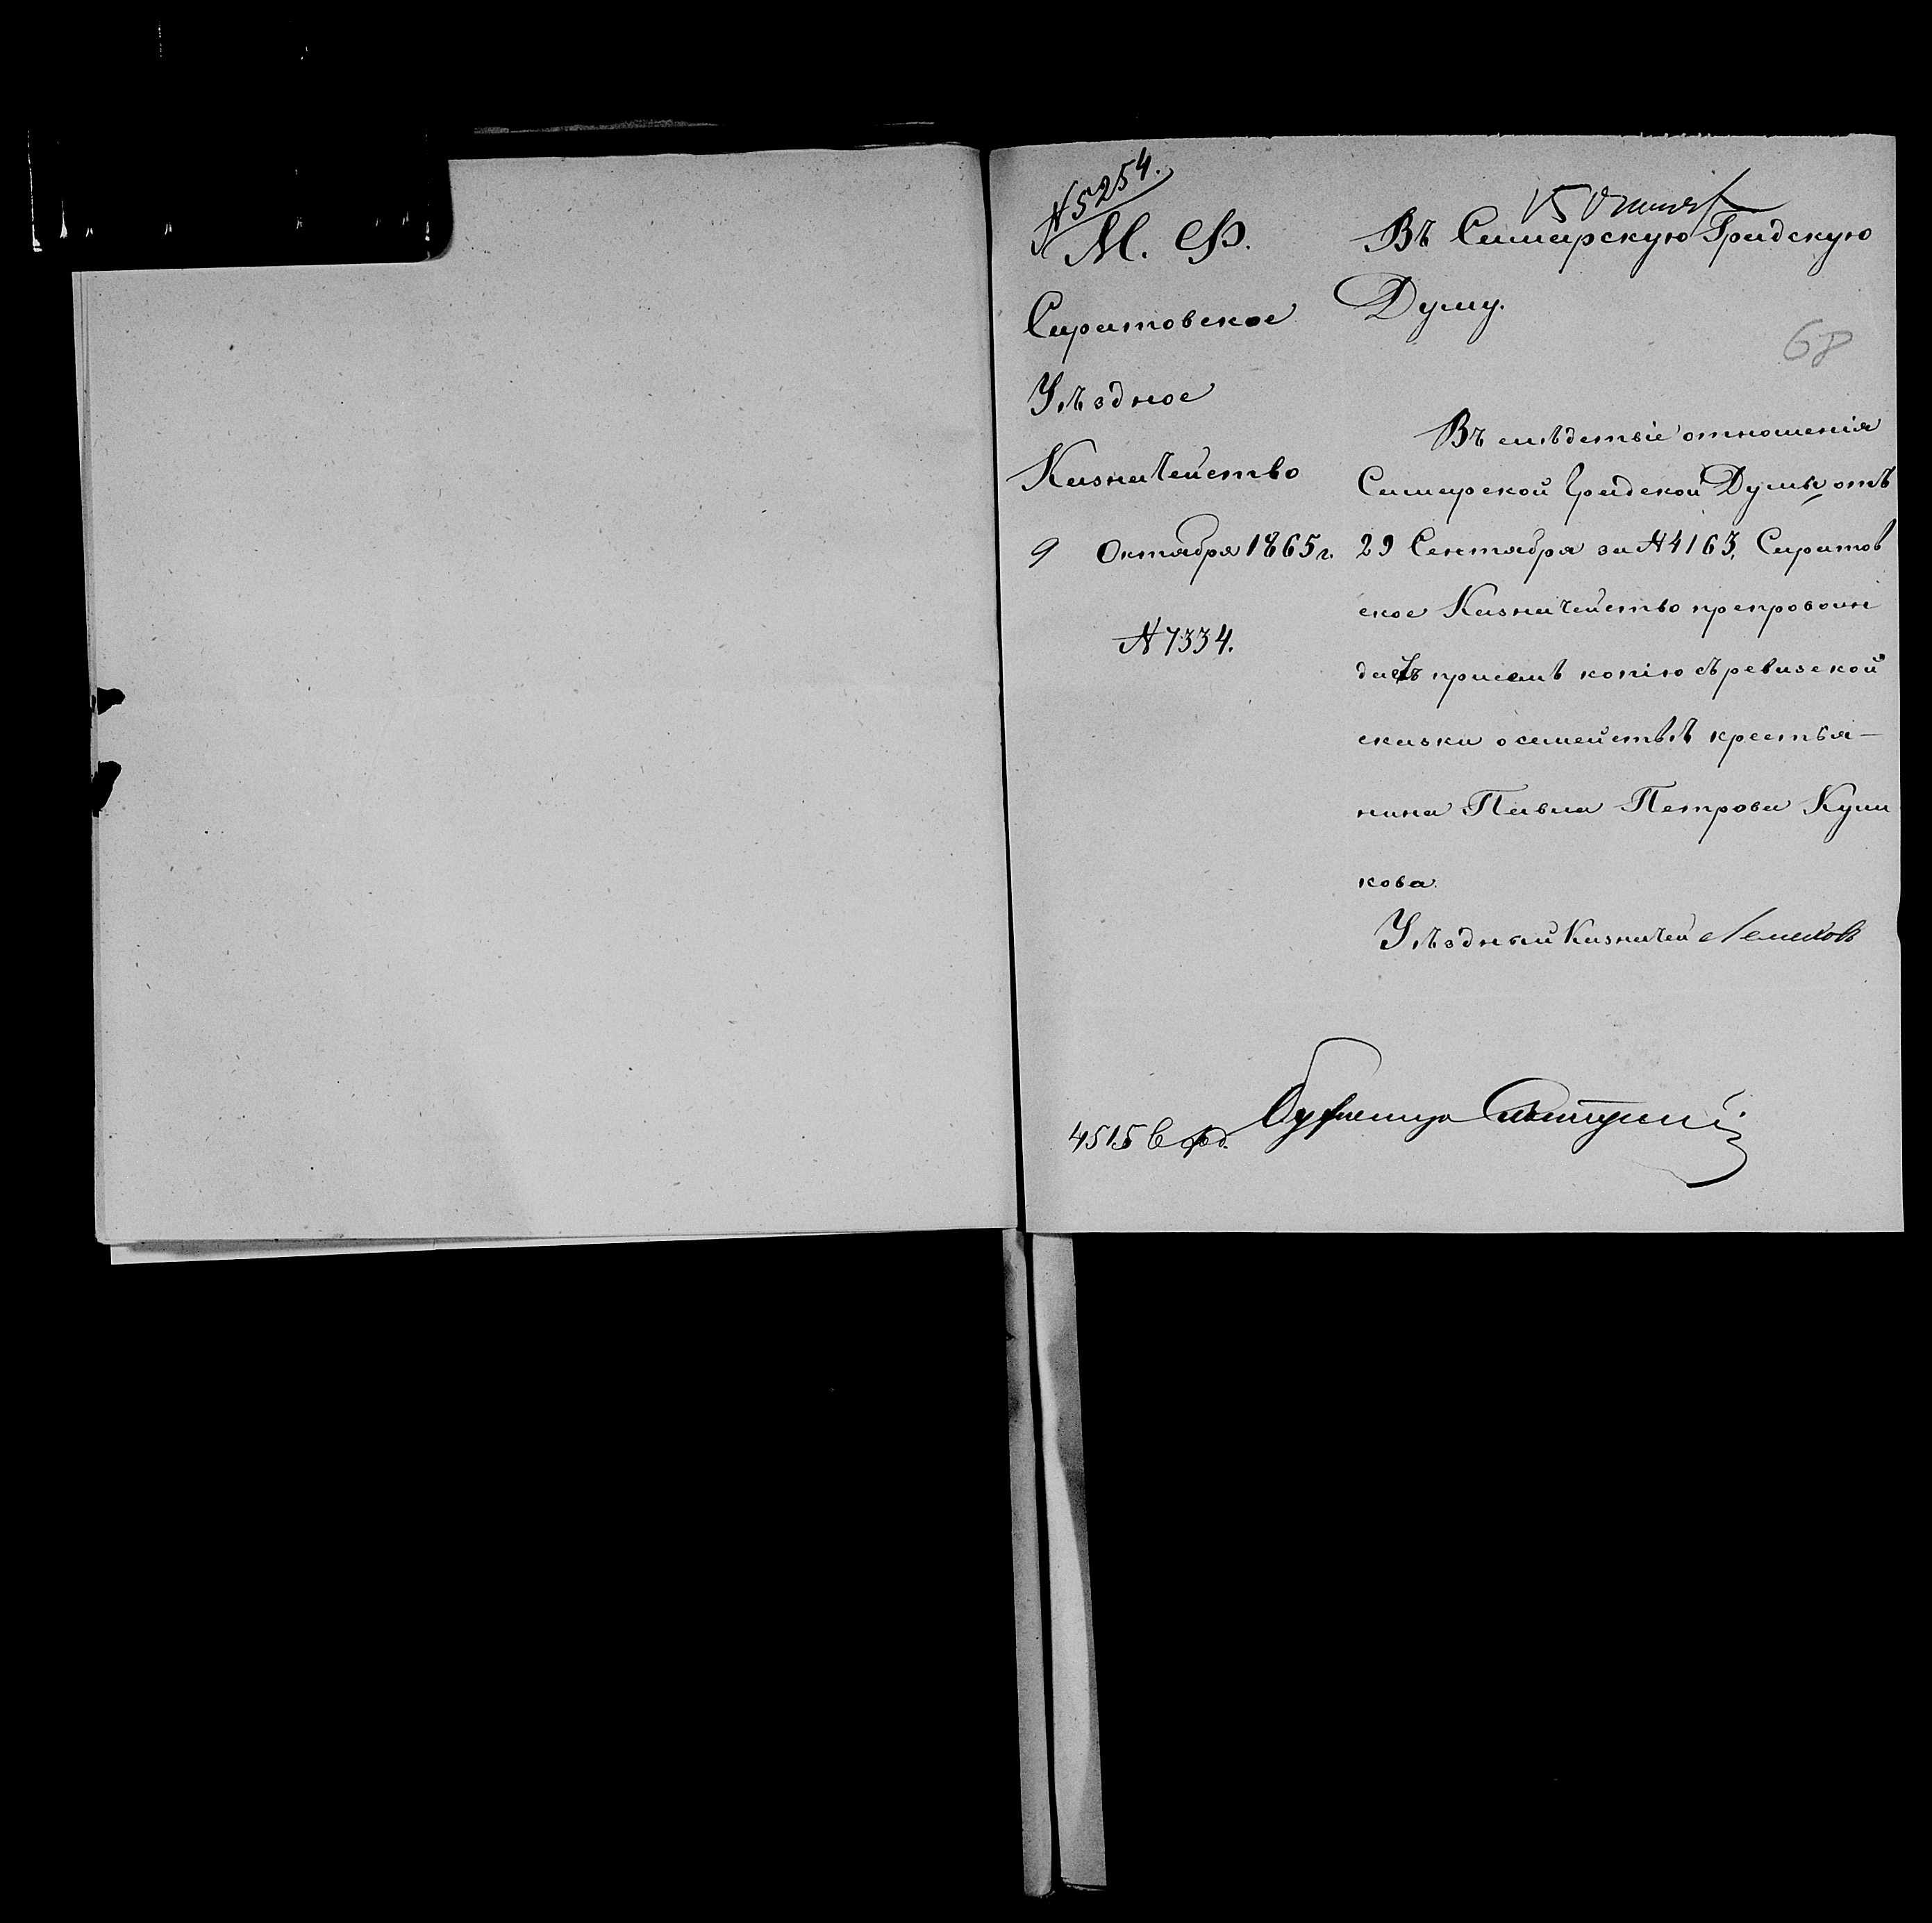 № 5254.
М. Ф.
Саратовское
Уѣздное
Казначейство
9 Октября 1865 г.
№ 7334.
15 Октяб
Въ Самарскую Градскую
Думу.
68
Въ слѣдствіе отношенія
Самарской Градской Думы отъ
29 Сентября за № 4163, Саратов
ское Казначейство препровож
даетъ присемъ копію съ ревизской
сказки о семействѣ крестья-
нина Павла Петрова Куш
кова.
Уѣздный Казначей
4515